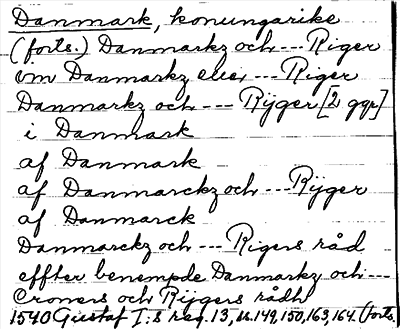 Danmark, konungarike
(forts.) Danmarkz och --- Riger
om Danmarkz eller --- Riger
Danmarkz och --- Rijger [2 ggr]
i Danmark
af Danmark
af Danmarckz och --- Rijger
af Danmarck
Danmarckz och --- Rigers råd
effter benempde Danmarkz och ---
Croners och Rijgers rådh
1540 Gustaf I:s reg. 13, s. 149, 150, 163, 164. (forts.